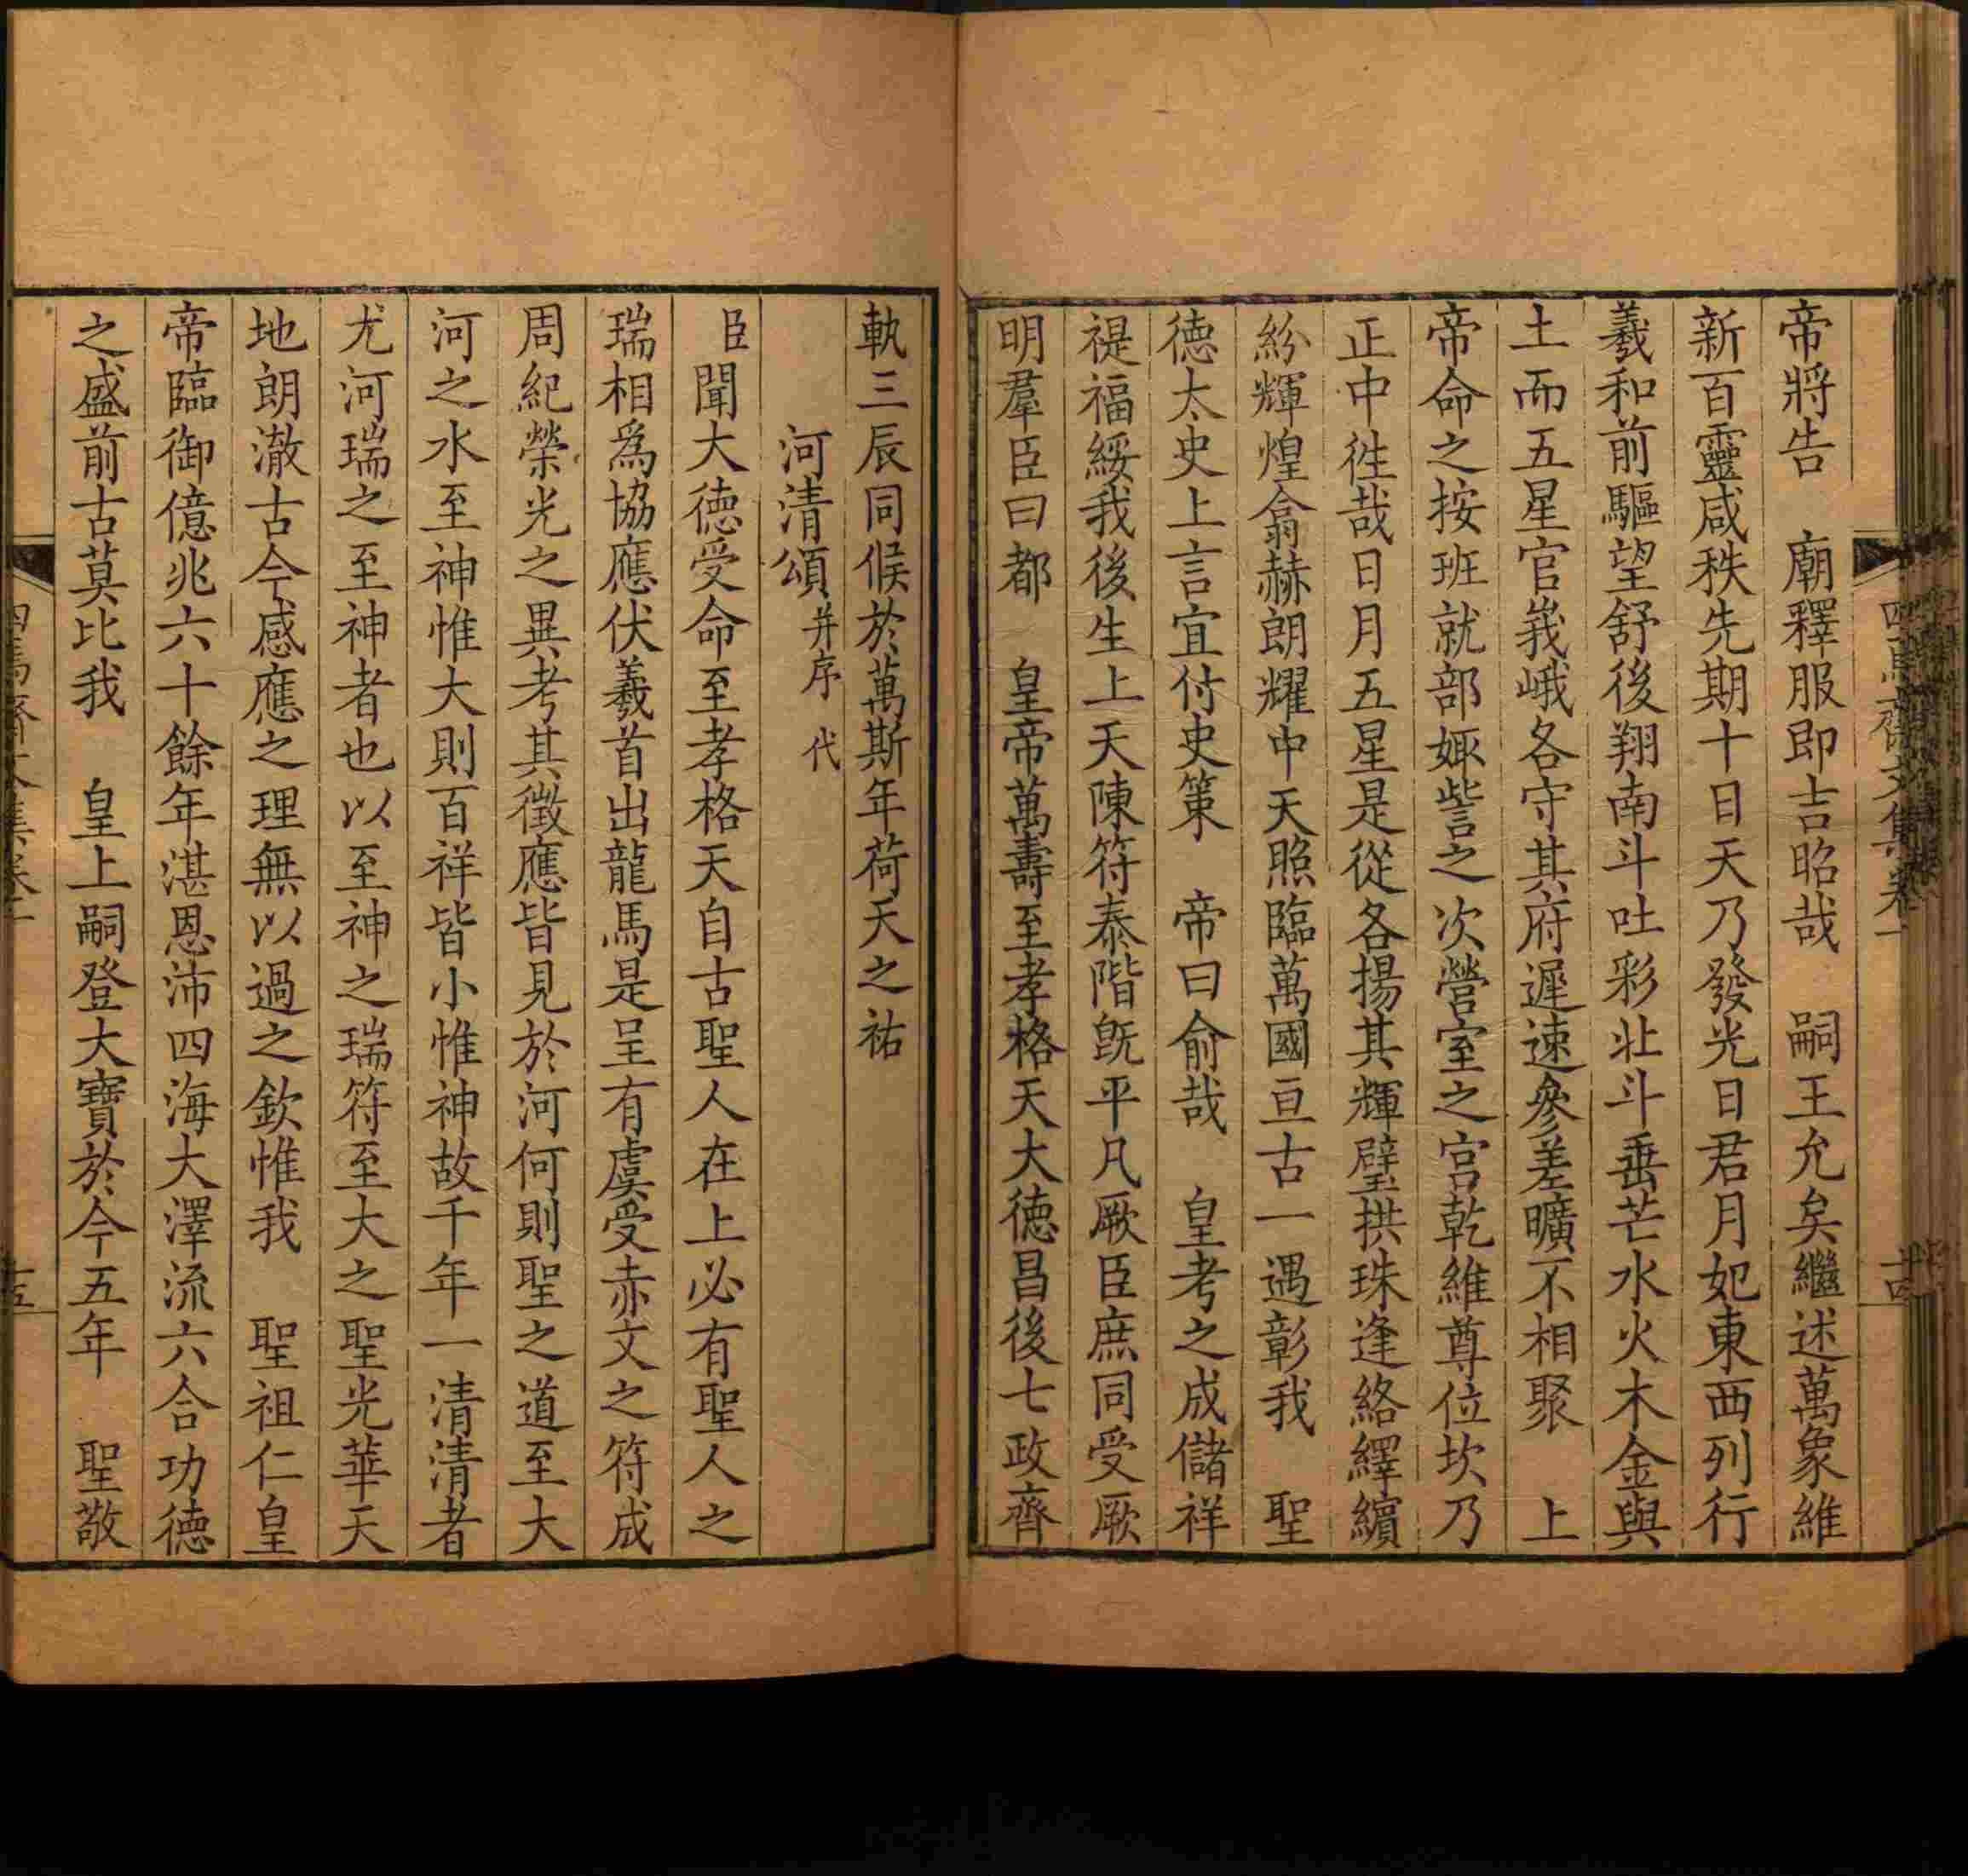 帝將告　廟釋服即吉昭哉　嗣王允矣繼述萬象維
新百靈咸秩先期十日天乃發光日君月妃東西列行
羲和前驅望舒後翔南斗吐彩北斗垂芒水火木金與
土而五星官峩峨各守其府遲速參差曠不相聚　上
帝命之按班就部娵訾之次營室之宮乾維尊位坎乃
正中徃哉日月五星是從各揚其輝璧拱珠逢絡繹繽
紛輝煌翕赫朗耀中天照臨萬國亘古一遇彰我　聖
德太史上言宜付史策　帝曰俞哉　皇考之成儲祥
禔福綏我後生上天陳符泰階旣平凡厥臣庶同受厥
明羣臣曰都　皇帝萬壽至孝格天大德昌後七政齊
軌三辰同候於萬斯年荷天之祐
河清頌并序　代
臣聞大德受命至孝格天自古聖人在上必有聖人之
瑞相爲協應伏羲首出龍馬是呈有虞受赤文之符成
周紀榮光之異考其徵應皆見於河何則聖之道至大
河之水至神惟大則百祥皆小惟神故千年一清清者
尤河瑞之至神者也以至神之瑞符至大之聖光華天
地朗澈古今感應之理無以過之欽惟我　聖祖仁皇
帝臨御億兆六十餘年湛恩沛四海大澤流六合功德
之盛前古莫比我　皇上嗣登大寶於今五年　聖敬